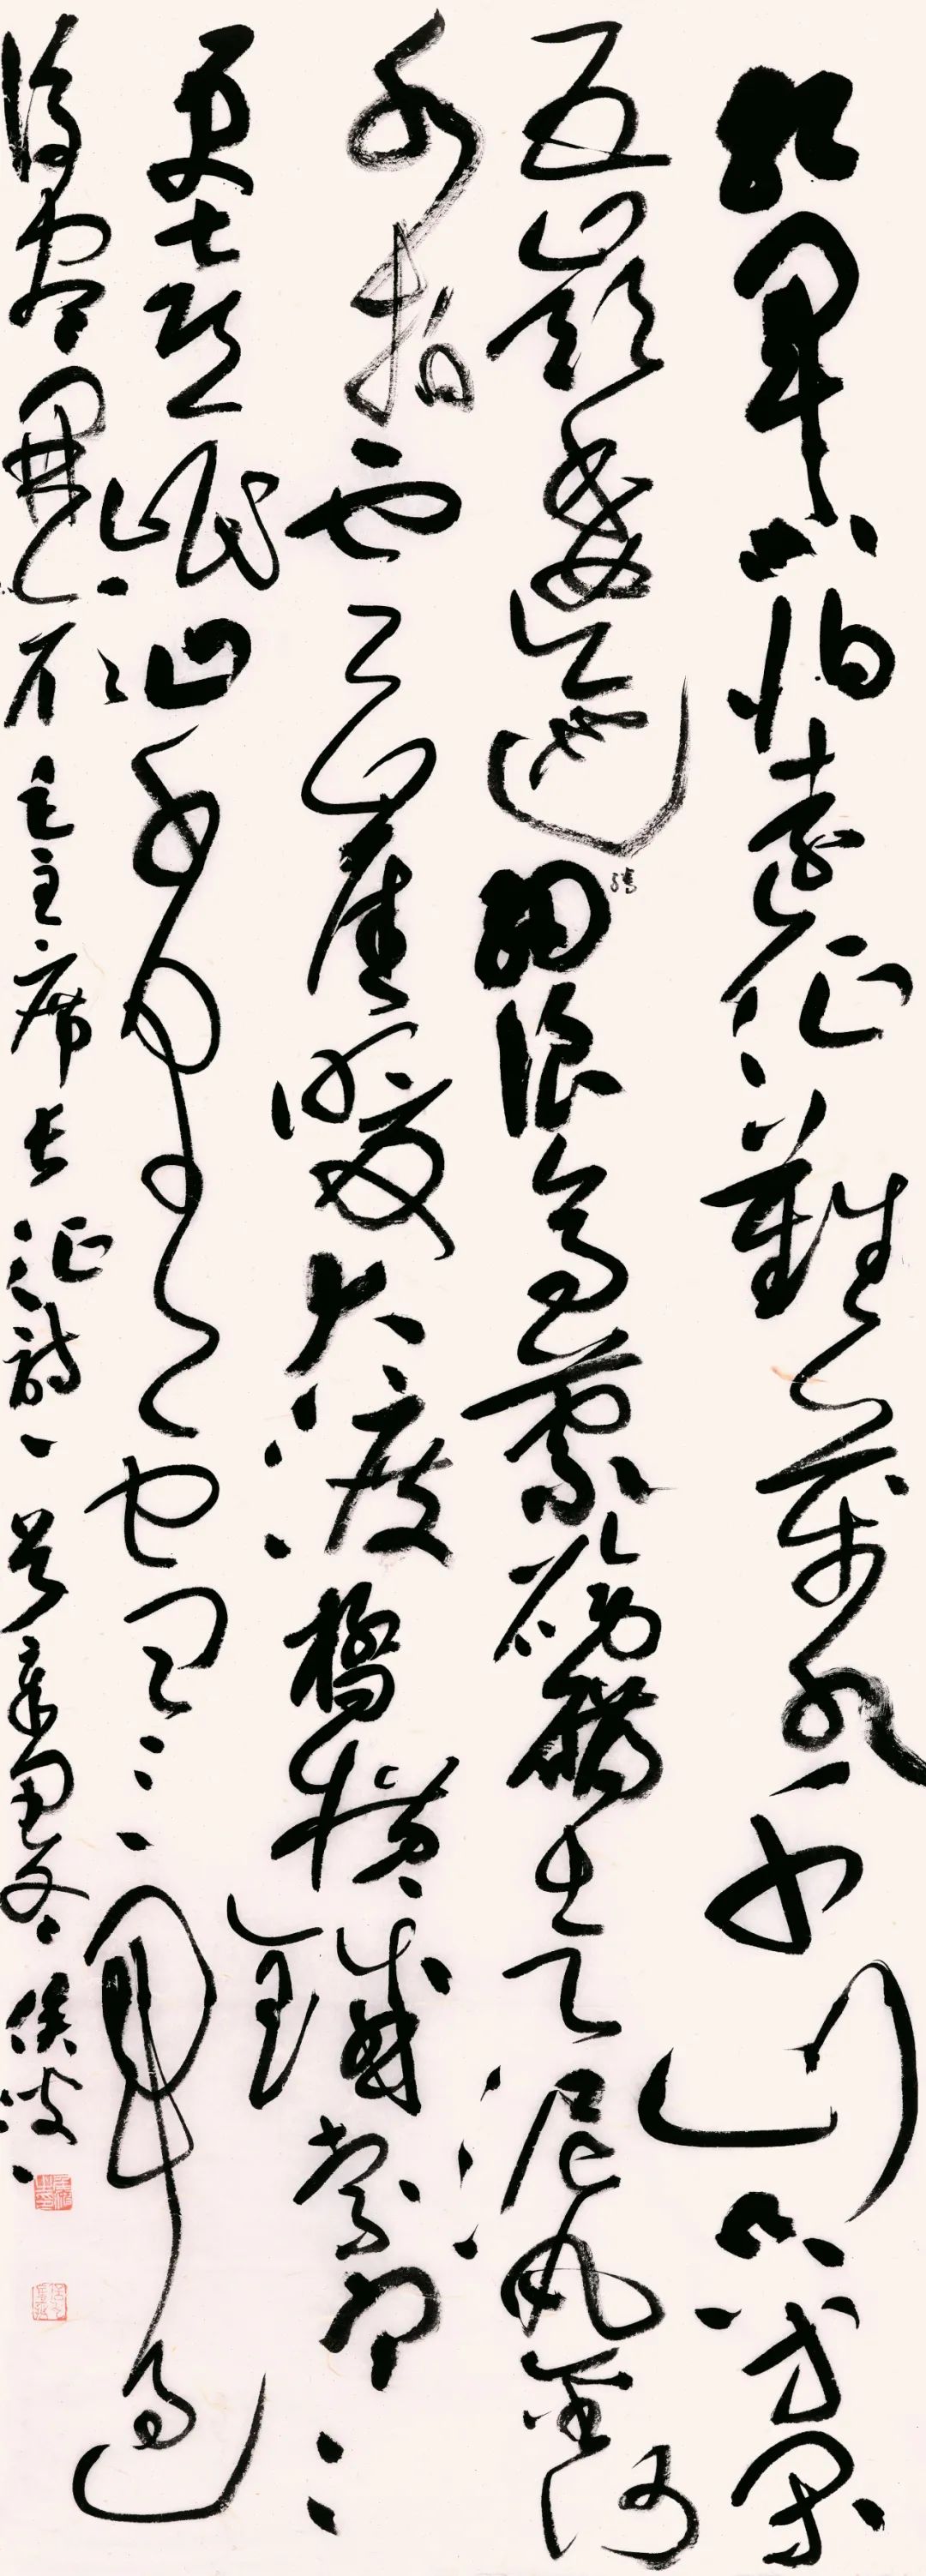 紅軍不怕遠征難萬水千山只等閑
五嶺逶迤騰細浪烏蒙磅礴走泥丸金沙
水拍雲崖暖大渡橋橫鐵索寒
更喜岷山千里雪三軍過
後盡開顏 毛主席長征詩一首 辛丑冬